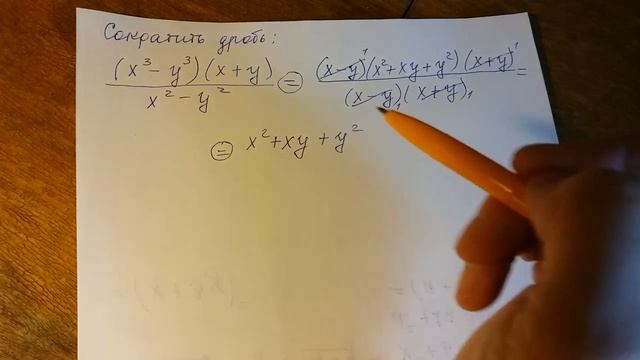 Сократить дробь:
(x³ - y³)(x + y) / x² - y² = (x - y)¹(x² + xy + y²)(x + y)¹ / (x - y)₁(x + y)₁ =
= x² + xy + y²